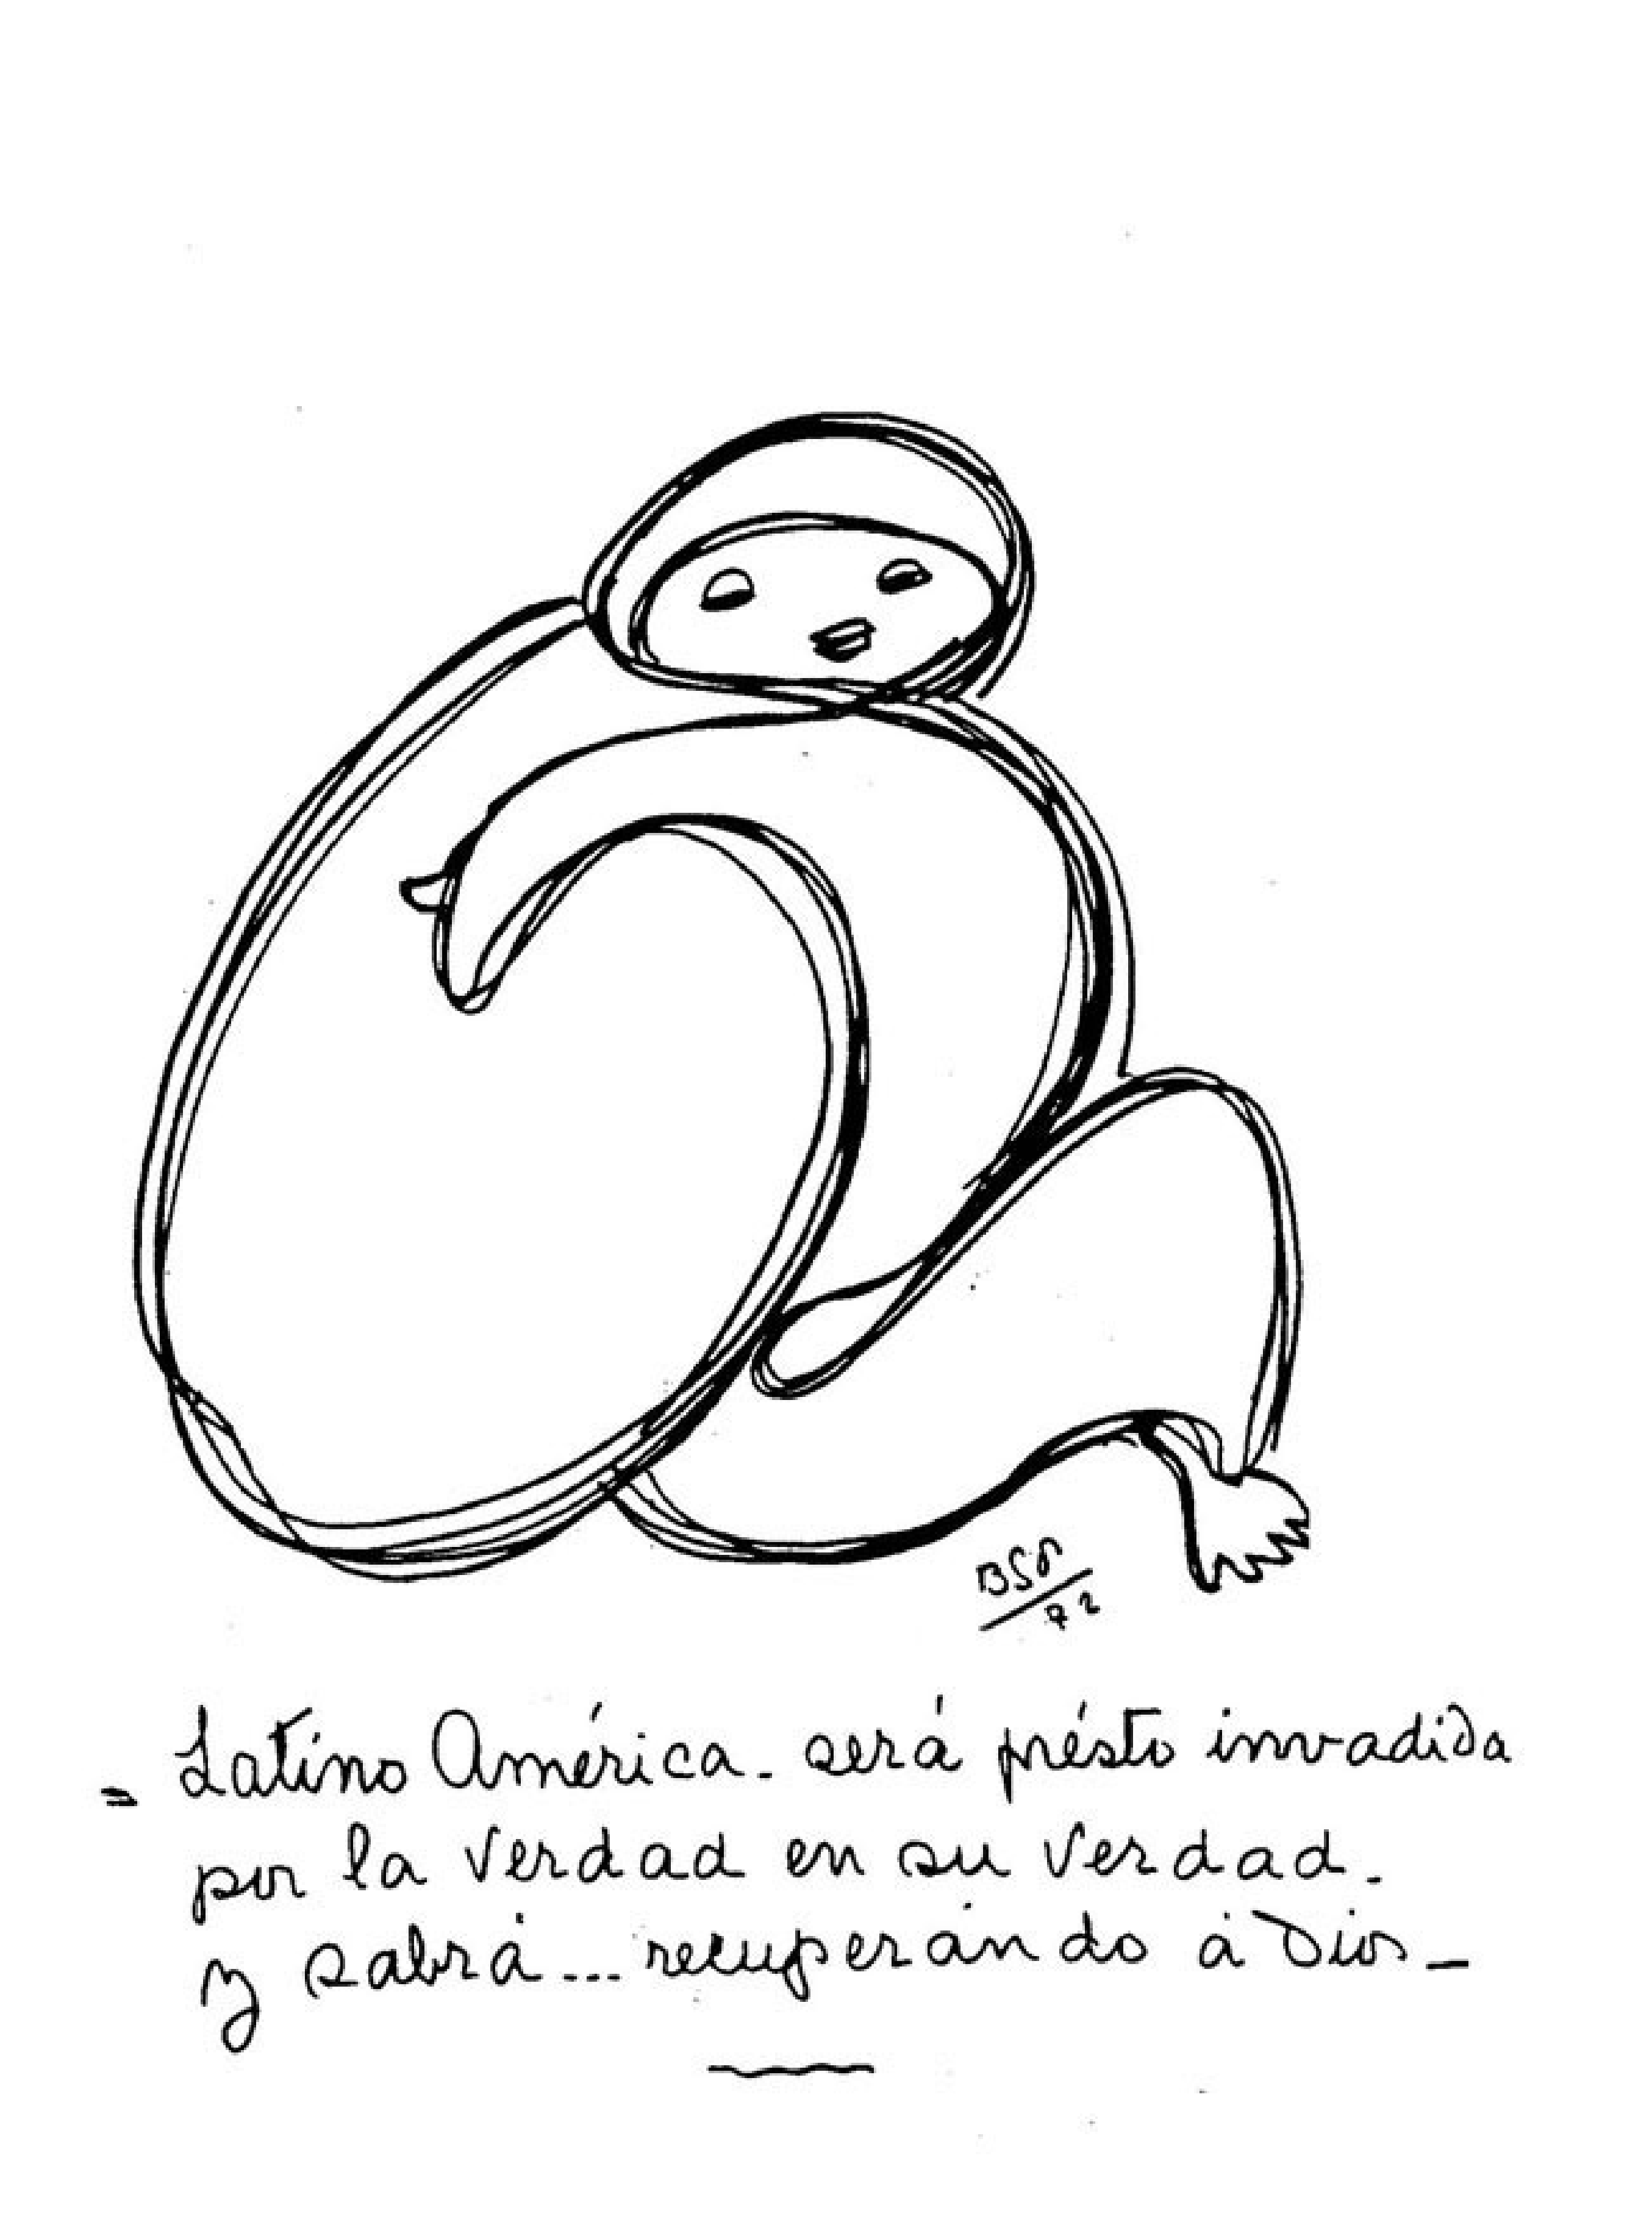 BSP
72
= Latino América. será présto invadida
por la verdad en su verdad.
y sabrá... recuperándo á Dios_